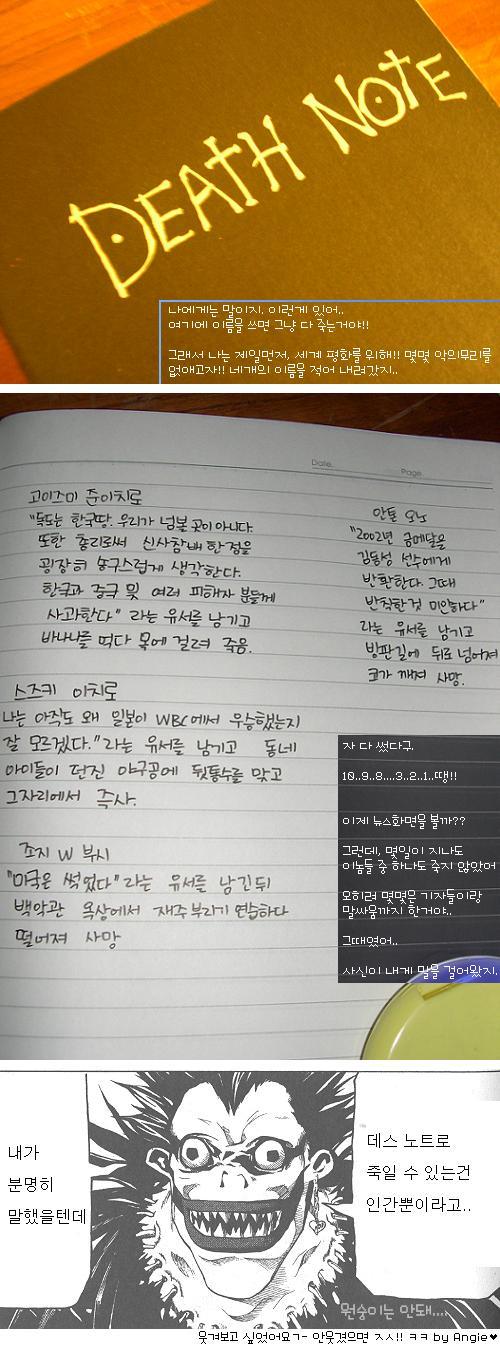 DEATH NOTE
나에게는 말이지. 이런게 있어..
여기에 이름을 쓰면 그냥 다 죽는거야!!
그래서 나는 제일먼저, 세계 평화를 위해!! 몇몇 악의무리를
없애고자!! 네개의 이름을 적어 내려갔지..
Date.
Page.
고이즈미 준이치로
"독도는 한국땅. 우리가 넘볼 곳이 아니다.
또한 총리로써 신사참배 한 점을
굉장히 송구스럽게 생각한다.
한국과 중국 및 여러 피해자 분들께
사과한다" 라는 유서를 남기고
바나나를 먹다 목에 걸려 죽음.
안톤 오노
"2002년 금메달을
김동성 선수에게
반환한다. 그때
반칙한것 미안하다"
라는 유서를 남기고
빙판길에 뒤로 넘어져
코가 깨져 사망.
스즈키 이치로
나는 아직도 왜 일본이 WBC에서 우승했는지
잘 모르겠다." 라는 유서를 남기고 동네
아이들이 던진 야구공에 뒷통수를 맞고
그자리에서 즉사.
죠지 W 부시
"미국은 썩었다" 라는 유서를 남긴뒤
백악관 옥상에서 재주부리기 연습하다
떨어져 사망
자 다 썼다구.
10..9..8....3..2..1..땡!!
이제 뉴스화면을 볼까??
그런데, 몇일이 지나도
이놈들 중 하나도 죽지 않았어
모히려 몇몇은 기자들이랑
말싸움까지 한거야..
그때였어..
사신이 내게 말을 걸어왔지.
내가
분명히
말했을텐데
데스 노트로
죽일 수 있는건
인간뿐이라고..
원숭이는 안돼....
웃겨보고 싶었어요ㄱ- 안웃겼으면 ㅈㅅ!! ㅋㅋ by Angie♥